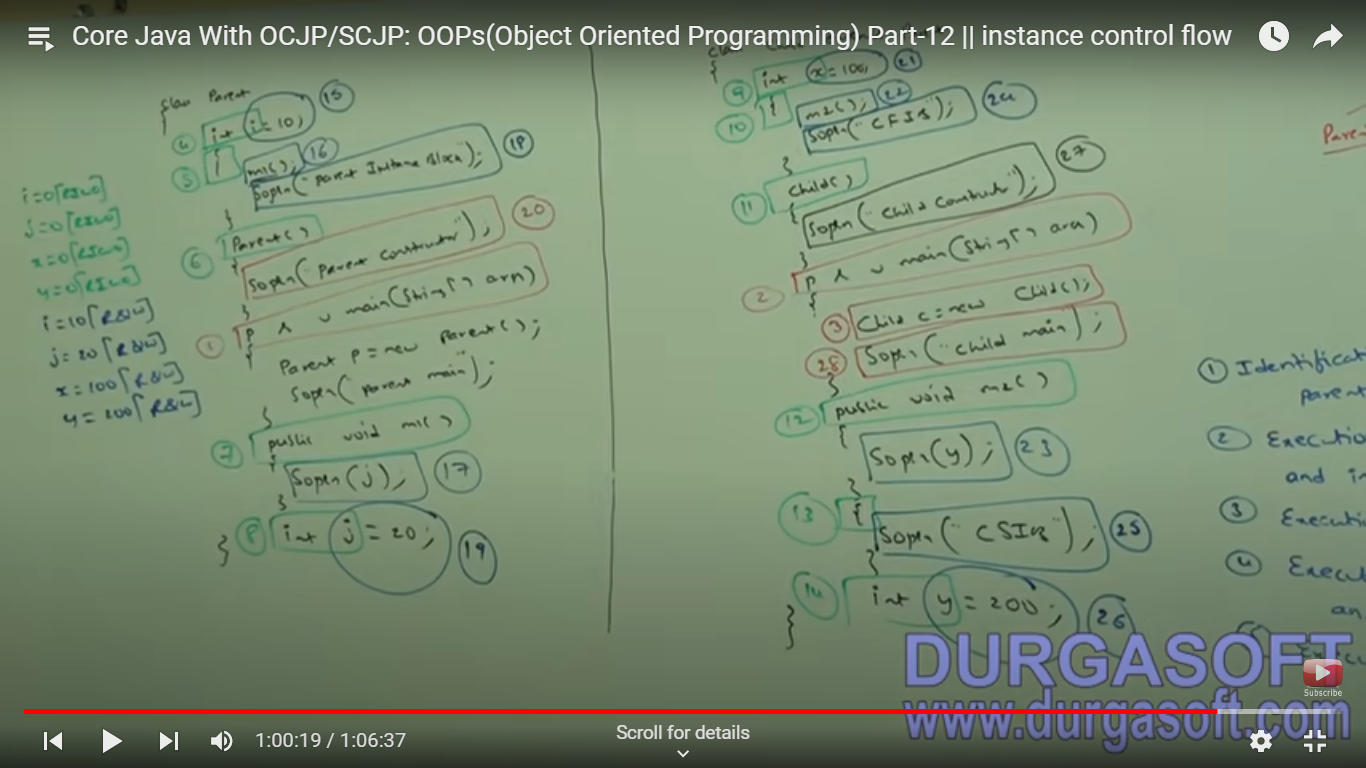 Core Java With OCJP/SCJP: OOPs(Object Oriented Programming) Part-12 || instance control flow
class Parent
{
4 int i = 10; 15
5 { m1(); 16
Sopln("Parent Instance Block"); 18
}
6 Parent()
{
Sopln("Parent constructor"); 20
}
1 p s v main(String[] args)
{
Parent p = new Parent();
Sopln("parent main");
}
7 public void m1()
{
Sopln(j); 17
}
8 int j = 20; 19
}
i=0[RIWO]
j=0[RIWO]
x=0[RIWO]
y=0[RIWO]
i=10[R&W]
j=20[R&W]
x=100[R&W]
y=200[R&W]
{
9 int x = 100; 21
10 { m2(); 22
Sopln("CFIB"); 24
}
11 Child()
{
Sopln("Child Constructor"); 27
}
2 p s v main(String[] ara)
{
3 Child c = new Child();
28 Sopln("child main");
}
12 public void m2()
{
Sopln(y); 23
}
13 {
Sopln("CSIB"); 25
}
14 int y = 200; 26
}
Paren
1 Identificat
Paren
2 Executio
and in
3 Executi
4 Execu
an
DURGASOFT
www.durgasoft.com
Subscribe
1:00:19 / 1:06:37
Scroll for details